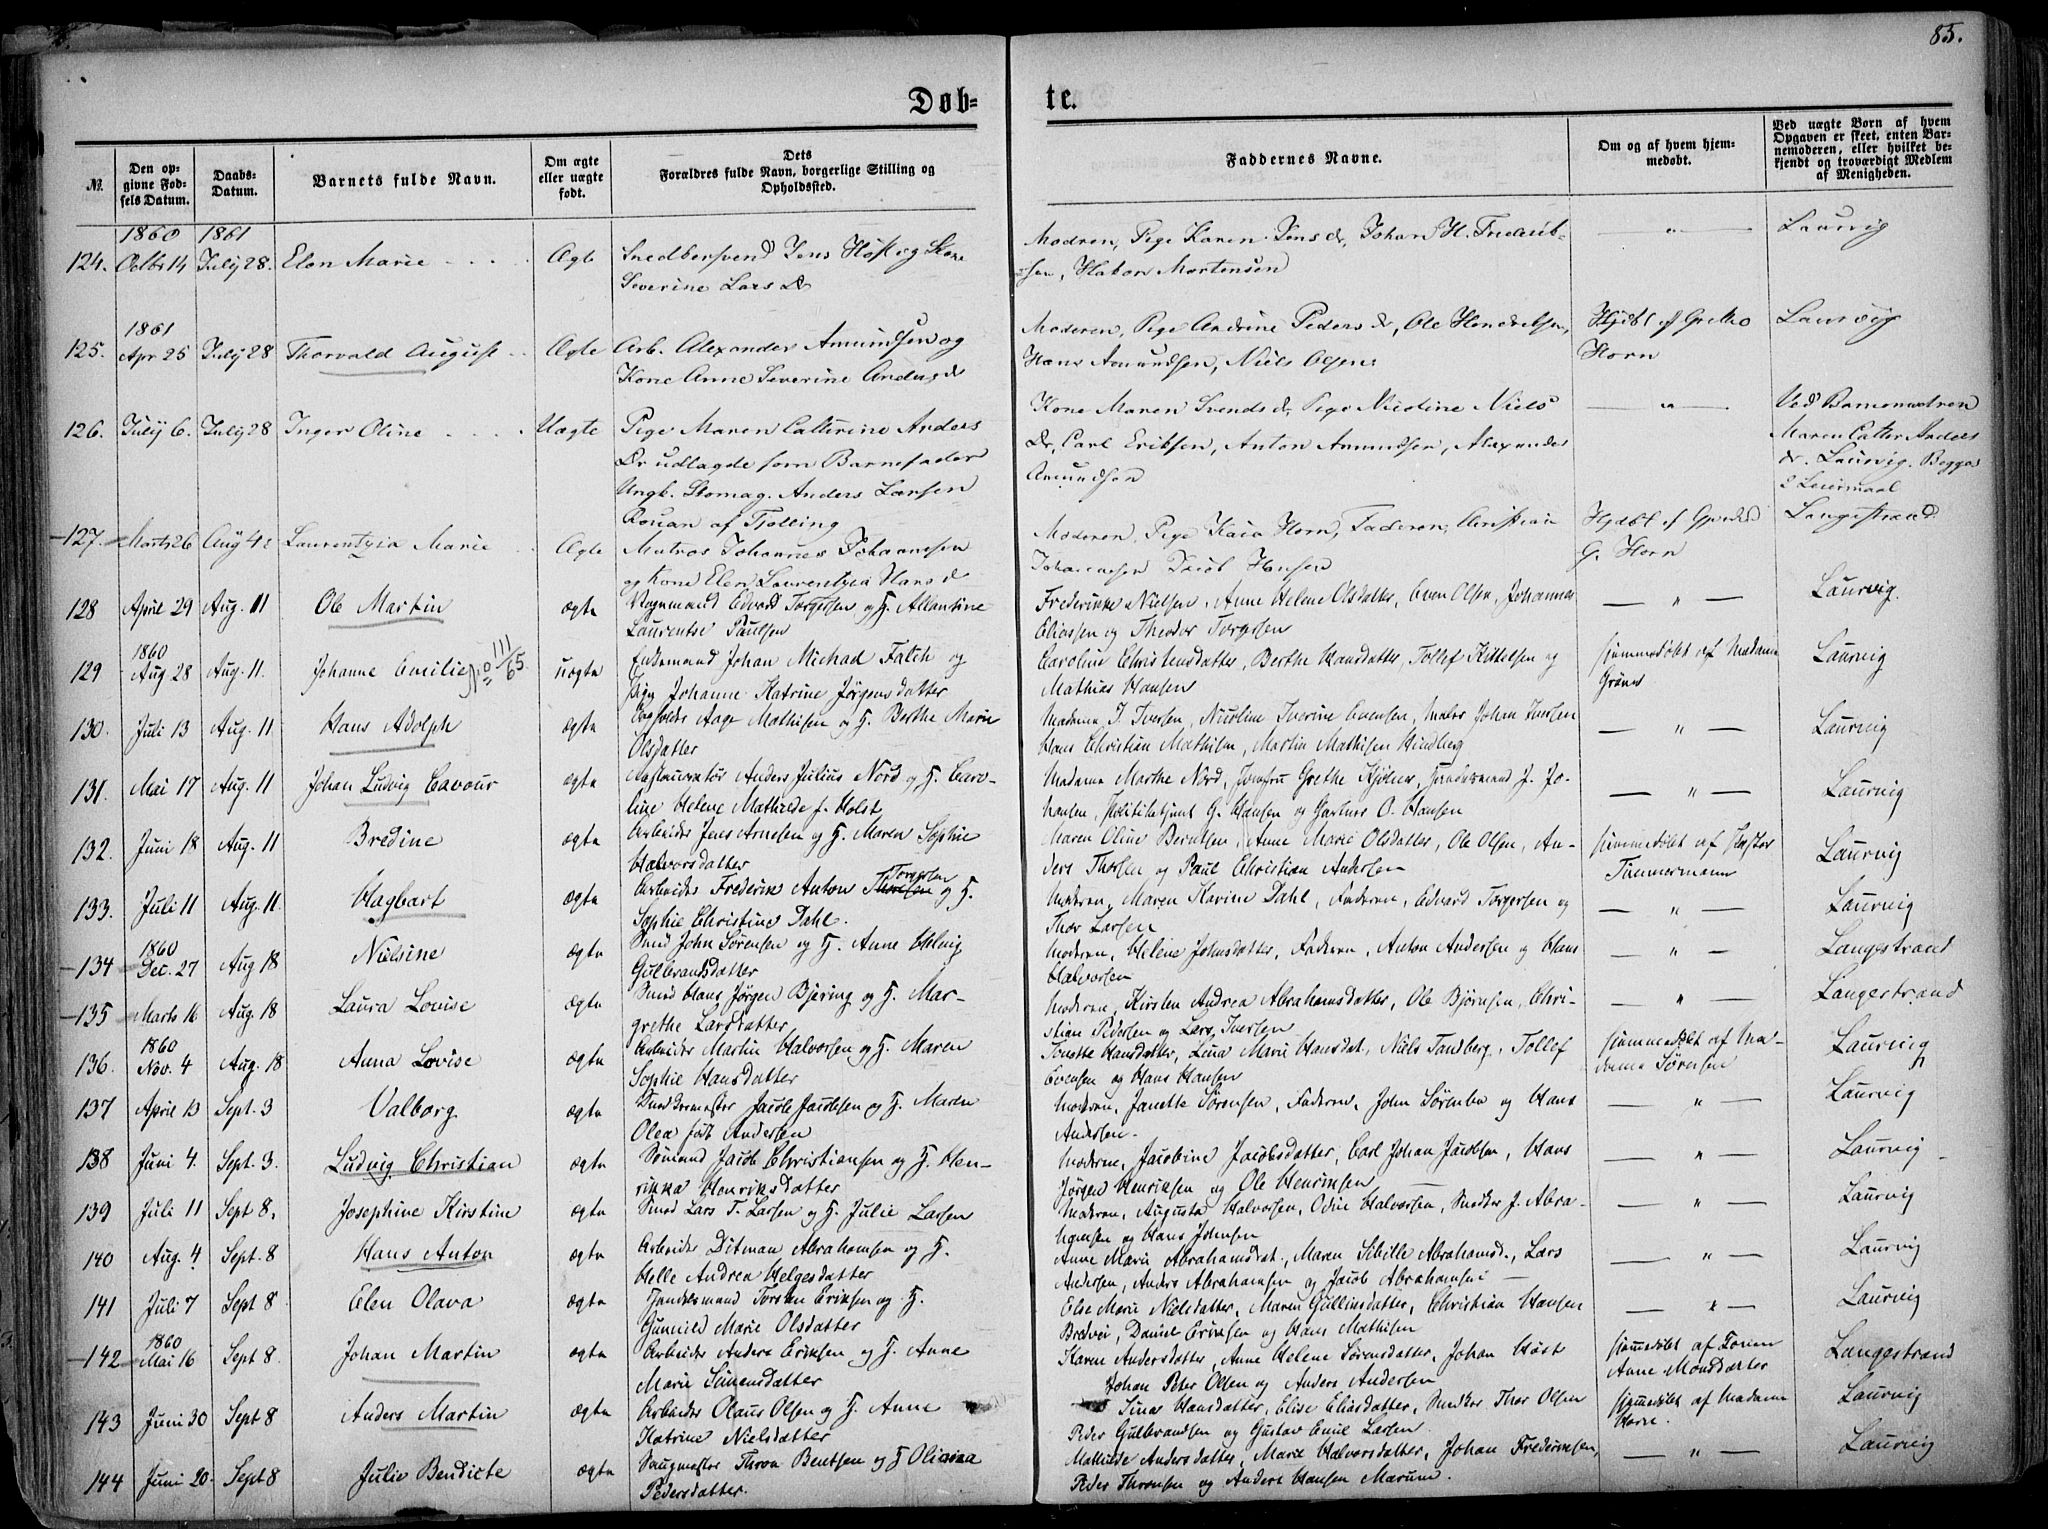 85.
Døb-
te.
№.
Den op-
givne Fød-
sels Datum.
Daabs-
Datum.
Barnets fulde Navn.
Om ægte
eller uægte
født.
Dets
Forældres fulde Navn, borgerlige Stilling og
Opholdssted.
Faddernes Navne.
Om og af hvem hjem-
medøbt.
Ved uægte Børn af hvem
Opgaven er skeet, enten Bar-
nemoderen, eller hvilket be-
kjendt og troværdigt Medlem
af Menigheden.
1860 1861
124. Octbr 14 July 28. Elen Marie Ægte Snedkersvend Jens Høst og Kone
Severine Lars Dr
Modren, Pige Karen Jens dr, Johan H. Fredrik-
sen, Hakon Mortensen
— " — Laurvig
1861
125. Apr 25 July 28 Thorvald August Ægte Arb. Alexander Amundsen og
Kone Anne Severine Anders dr
Moderen, Pige Andrine Peders dr, Ole Hendriksen,
Hans Amundsen, Niels Olsen
Hjdbt af Grethe
Horn
Laurvig
126. July 6. July 28 Inger Oline Uægte Pige Maren Cathrine Anders
Dr udlagde som Barnefader
Ungk. Skomag. Anders Larsen
af Tjølling
Kone Maren Svends dr, Pige Nicoline Niels
Dr, Carl Eriksen, Anton Amundsen, Alexander
Amundsen
— " —
Ved Barnemodren
Maren Cathr Anders
dr. Laurvig. Begges
2 Leiermaal
127. Marts 26 Aug 4 Laurentzia Marie Ægte Matros Johannes Johannesen
og Kone Elen Laurentzia Hans dr
Moderen, Pige Kaia Horn, Faderen, Christian
Johannesen Jacob Hansen
Hjdbt af
G. Horn
Langestrand
128 April 29 Aug. 11 Ole Martin ægte Vognmand Edvard Torgersen og H. Allantine
Laurentse Paulsen
Frederikke Nielsen, Anne Helene Olsdatter, Even Olsen, Johannes
Eliassen og Theodor Torgersen
— " — Laurvig.
1860
129 Aug 28 Aug. 11. Johanne Emilie No 111/65. uægte Enkemand Johan Michael Falch og
Pige Johanne Katrine Jørgensdatter
Caroline Christensdatter, Berthe Hansdatter, Tollef Kittelsen og
Mathias Hansen
hjemmedøbt af Madame
Laurvig
130. Juli 13 Aug. 11 Hans Adolph ægte Aage Mathisen og H. Berthe Marie
Olsdatter
Madame J. Iversen, Nicoline Iverine Evensen, Maler Johan Iversen
Hans Christian Mathisen, Martin Mathisen Hindberg
— " — Laurvig
131. Mai 17 Aug. 11 Johan Ludvig Cavour ægte Restauratør Anders Julius Nord og H. Caro-
line Helene Mathilde f. Holst
Madame Marthe Nord, Jomfru Grethe Kjølner, Handelsmand J. Jo-
hansen, Politibetjent G. Hansen og Gartner O. Hansen
— " — Laurvig
132. Juni 18 Aug. 11 Bredine ægte Arbeider Jens Arnesen og H. Maren Sophie
Halvorsdatter
Maren Oline Berntsen, Anne Marie Olsdatter, Ole Olsen, An-
ders Thorsen og Paul Christian Andersen
hjemmedøbt af Pastor
Timmermann
Laurvig
133. Juli 11 Aug. 11. Hagbart ægte Arbeider Frederik Anton Torgersen og H.
Sophie Christine Dahl.
Modren, Maren Karine Dahl, Faderen, Edvard Torgersen og
Thor Larsen
— " — Laurvig
1860
134 Dec. 27 Aug 18 Nielsine ægte Smed John Sørensen og H. Anne Helvig
Gulbrandsdatter
Modren, Helene Johnsdatter, Faderen, Anton Andersen og Hans
Halvorsen
— " — Langestrand
135 Marts 16 Aug. 18 Laura Lovise ægte Smed Hans Jørgen Bjering og H. Mar-
grethe Larsdatter
Modren, Kirsten Andrea Abrahamsdatter, Ole Bjørnsen, Chri-
stian Pedersen og Lars Iversen
" Langestrand
1860
136. Nov. 4 Aug. 18 Anna Lovise ægte Arbeider Martin Halvorsen og H. Maren
Sophie Hansdatter
Hansdatter, Lina Marie Hansdat., Niels Tandberg, Tollef
Evensen og Hans Hansen
hjemmedøbt af Ma-
dame Sørensen
Laurvig
137 April 13 Sept. 3 Valborg ægte Jacob Jacobsen og H. Maren
Olea født Andersen
Modren, Janette Sørensen, Faderen, John Sørensen og Hans
Andersen.
— " — Laurvig
138 Juni 4. Sept. 3. Ludvig Christian ægte Sømand Jacob Christiansen og H. Hen-
rikka Henriksdatter
Modren, Jacobine Jacobsdatter, Carl Johan Jacobsen, Hans
Jørgen Henriksen og Ole Henriksen
— " — Laurvig
139 Juli 11 Sept 8. Josephine Kirstine ægte Smed Lars T. Larsen og H. Julie Larsen
Modren, Augusta Halvorsen, Odine Halvorsen, Snedker J. Abra-
hamsen og Hans Johnsen
— " — Laurvig
140 Aug. 4 Sept. 8 Hans Anton ægte Arbeider Ditman Abrahamsen og H.
Helle Andrea Helgesdatter
Anne Marie Abrahamsdat., Maren Sibille Abrahamsd., Lars
Andersen, Anders Abrahamsen og Jacob Abrahamsen
— " — Laurvig
141 Juli 7 Sept 8 Elen Olava ægte Handelsmand Torsten Eriksen og H.
Gunnild Marie Olsdatter
Else Marie Nielsdatter, Maren Gullinsdatter, Christian Hansen
Bredvei, Daniel Eriksen og Hans Mathisen
— " — Laurvig
1860
142 Mai 16 Sept 8 Johan Martin ægte Arbeider Anders Eriksen og H. Anne
Marie Simensdatter
Karen Andersdatter, Anne Helene Sørensdatter, Johan Høst
Johan Peter Olsen og Anders Andersen
hjemmedøbt af Konen
Anne Monsdatter
Langestrand
143 Juni 30 Sept 8 Anders Martin ægte Arbeider Olaus Olsen og H. Anne
Katrine Nielsdatter
Sina Hansdatter, Elise Eliasdatter, Snedker Thor Olsen
Peder Gulbrandsen og Gustav Emil Larsen
hjemmedøbt af Madame
Horn.
Laurvig
144 Juni 20. Sept 8 Julie Bendicte ægte Thron Bentsen og H Oliana
Pedersdatter.
Mathilde Andersdatter, Marie Halvorsdatter, Johan Frederiksen,
Peder Thronsen og Anders Hansen Marum.
— " — Laurvig